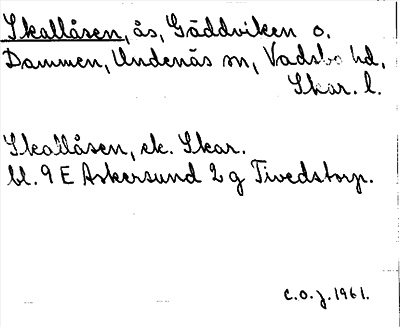 Skallåsen, ås, Gäddviken o.
Dammen, Undenäs sn, Vadsbo hd,
Skar. l.
Skallåsen, ek. Skar.
bl. 9 E Askersund 2 g Tivedstorp.
C.O.J. 1961.